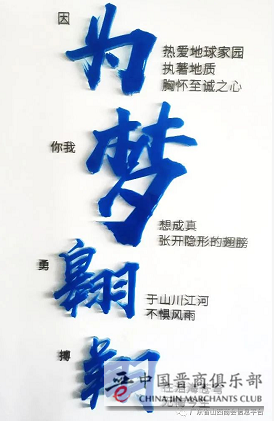 因
为
热爱地球家园
执著地质
胸怀至诚之心
你我
梦
想成真
张开隐形的翅膀
勇
翱
于山川江河
不惧风雨
搏
翔
中国晋商俱乐部
CHINA JIN MERCHANTS CLUB